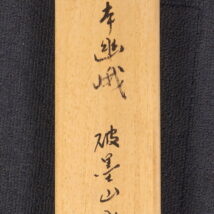 本幽峨 破墨山